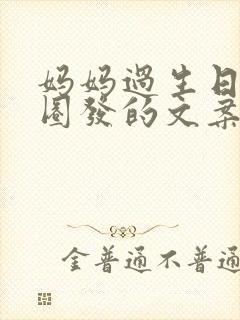 妈妈过生日
圈發的文案
金普通不普通